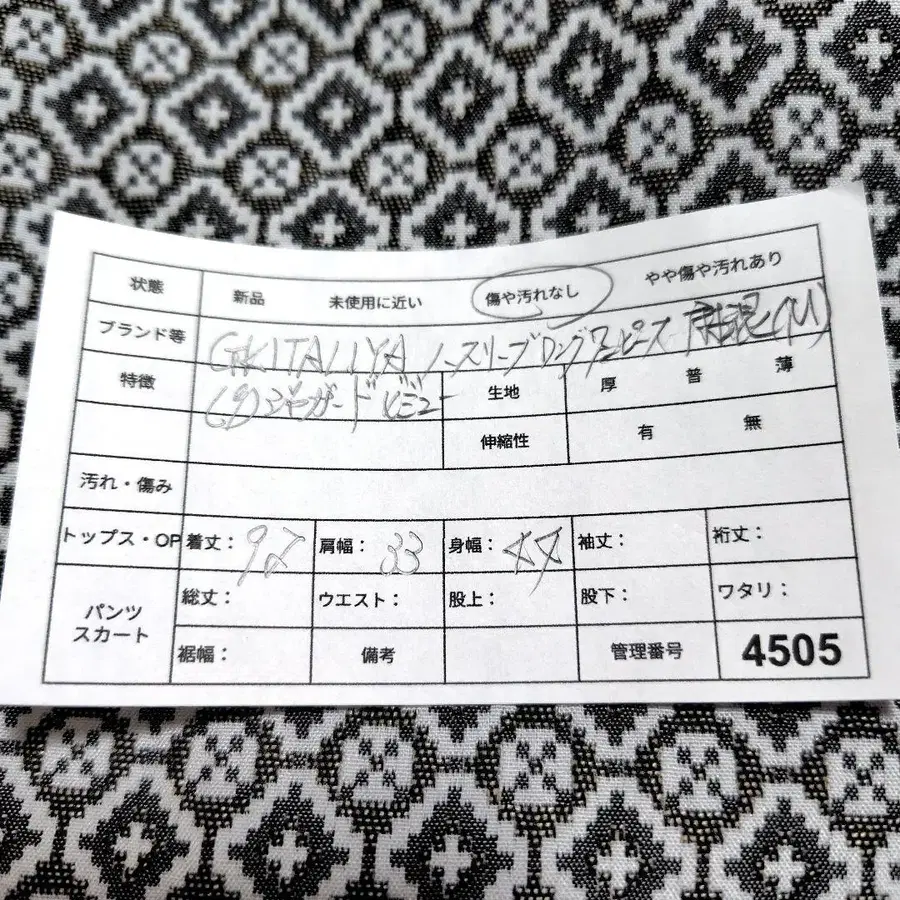 状態 新品 未使用に近い 傷や汚れなし やや傷や汚れあり
ブランド等 GKITALIYA ノースリーブロングワンピース (M)
特徴 (9) ジャガード 生地 厚 普 薄
伸縮性 有 無
汚れ・傷み
トップス・OP 着丈： 92 肩幅： 33 身幅： 44 袖丈： 裄丈：
パンツ スカート 総丈： ウエスト： 股上： 股下： ワタリ：
裾幅： 備考 管理番号 4505